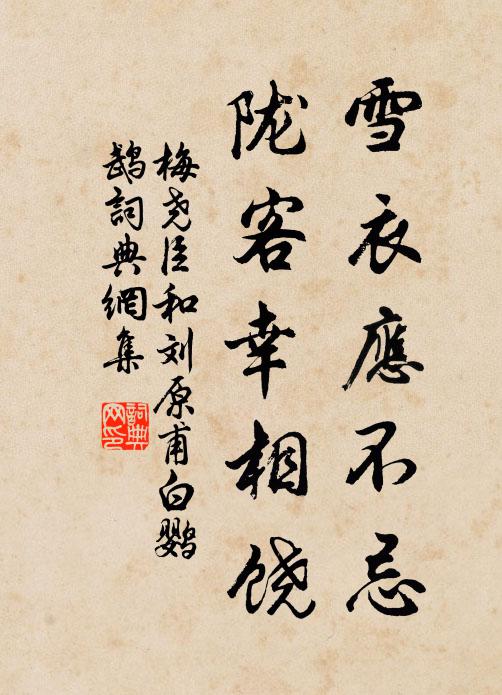 雪衣應不忌
陇客幸相饶
梅尧臣和刘原甫白鹦
鹉詞典網集
詞典网印